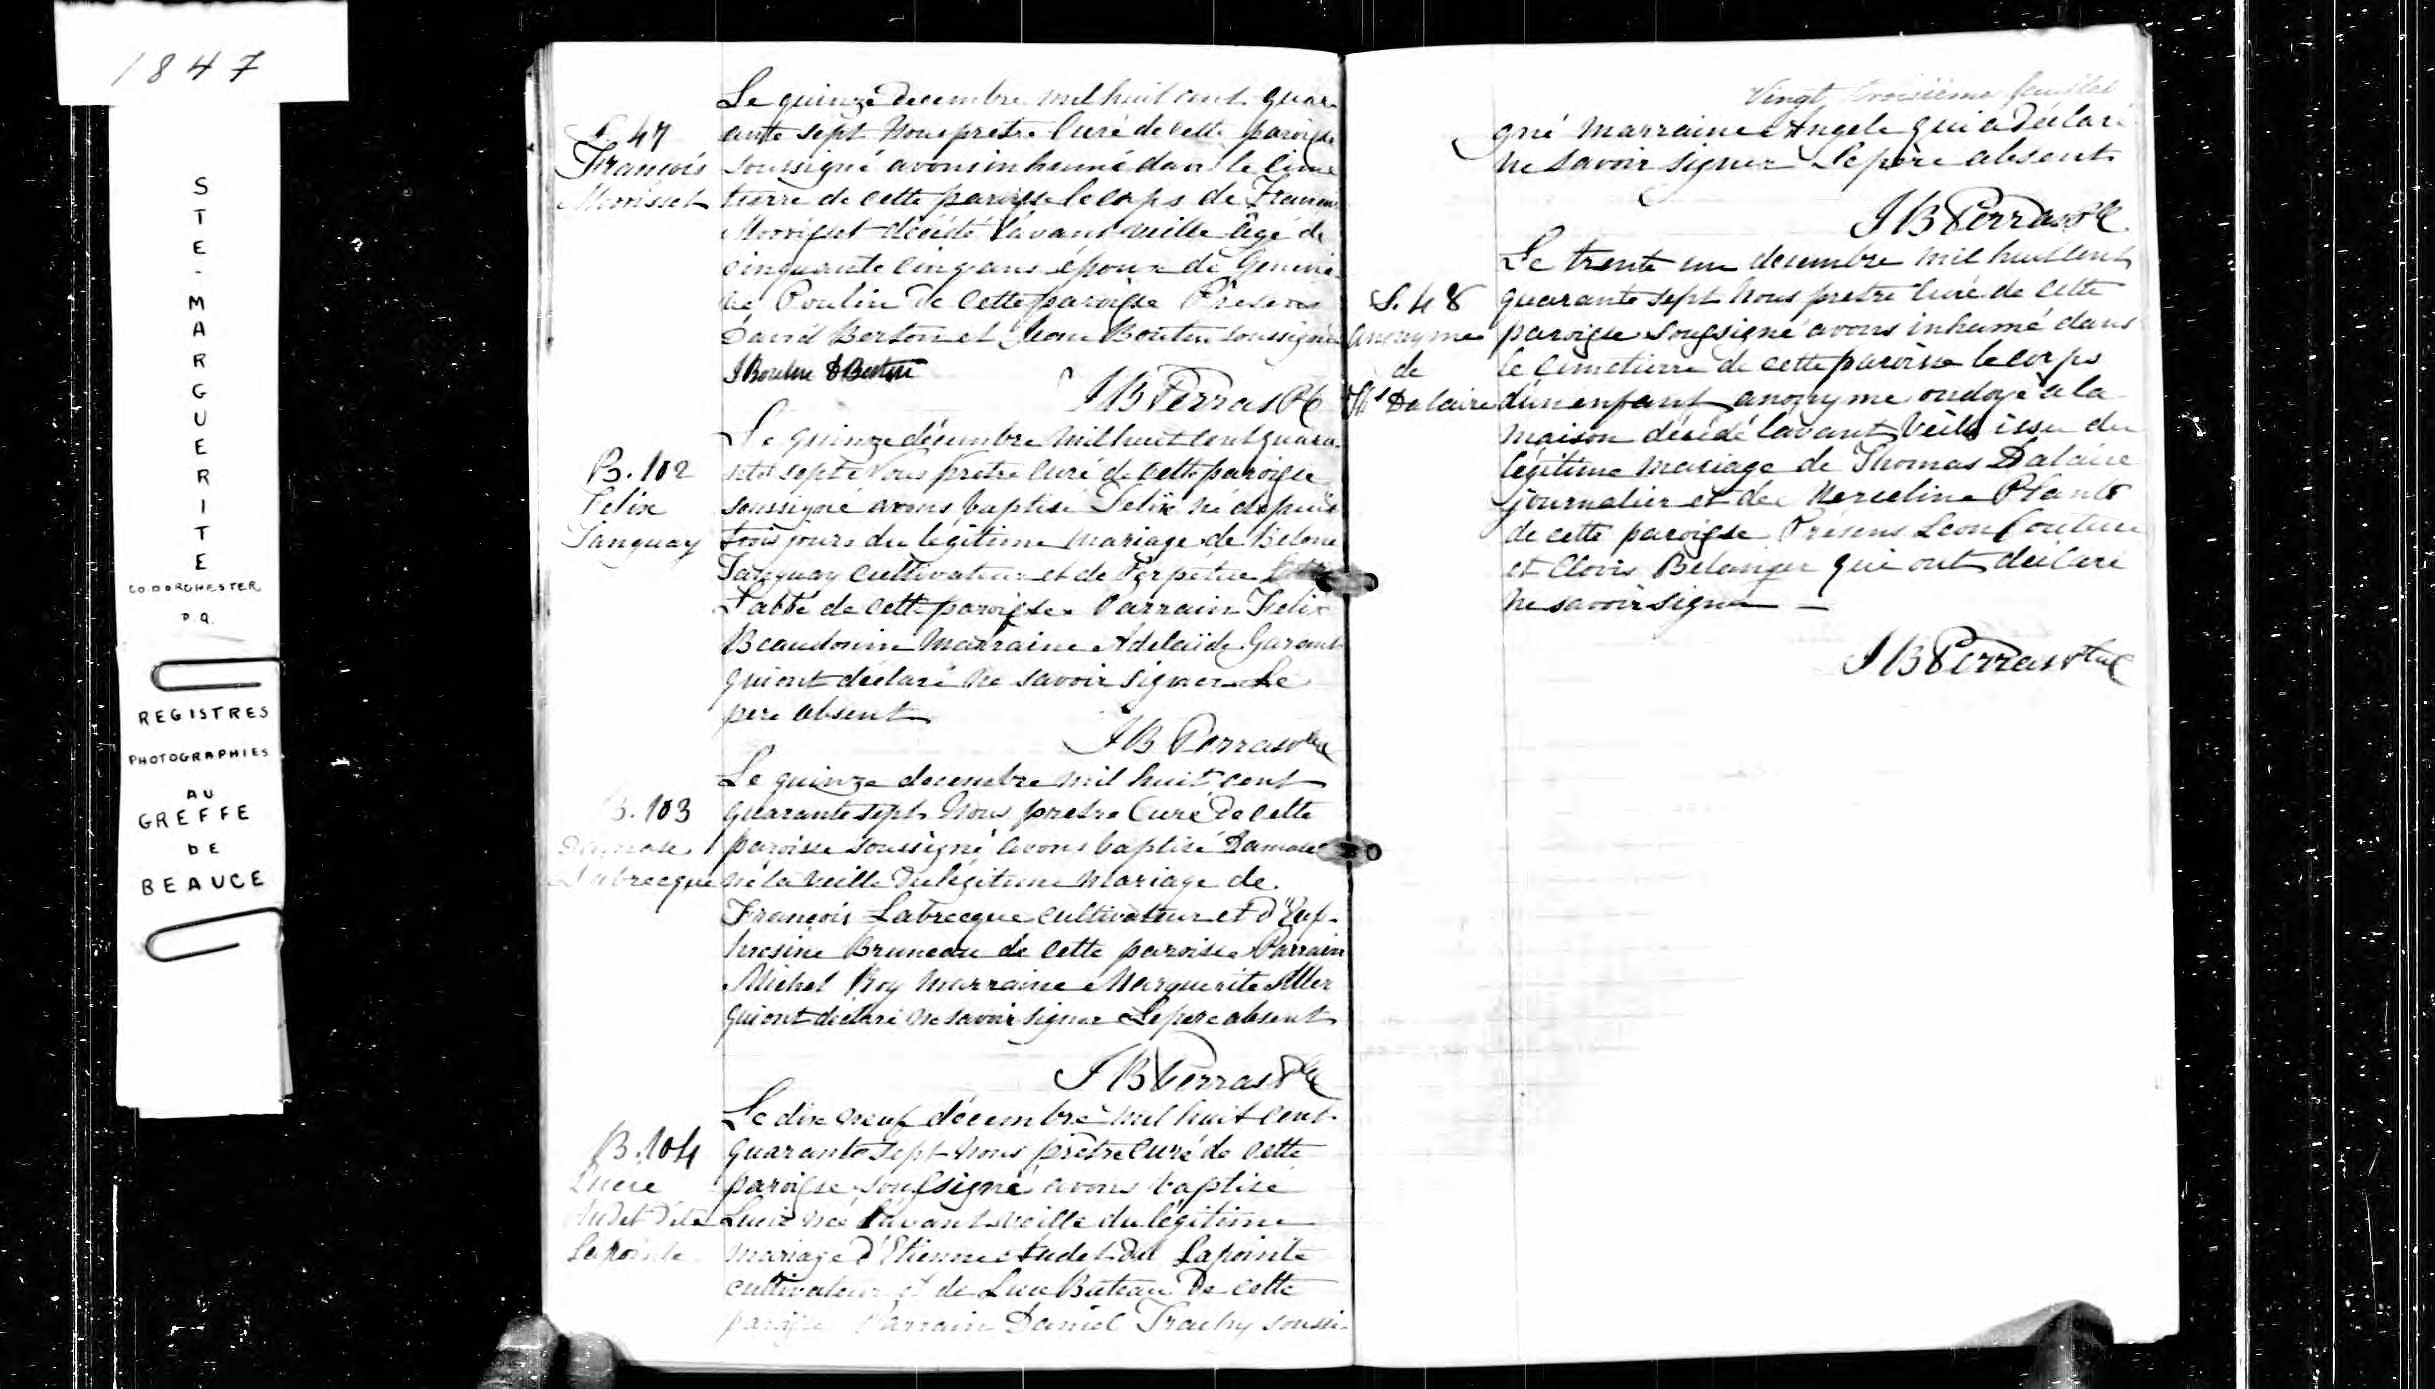 1847
STE-MARGUERITE
CO. DORCHESTER
P.Q.
REGISTRES
PHOTOGRAPHIES
AU
GREFFE
DE
BEAUCE
S. 47
François
Morisset
Le quinze decembre mil huit cent quar
ante sept Nous pretre Curé de cette paroisse
soussigné avons inhumé dans le cime
tierre de cette paroisse le corps de François
Morrisset décédé l'avant veille âgé de
cinquante cinq ans époux de Genevie
ve Poulin de cette paroisse Présens
David Berton et Jean Boutin soussignés
J Boutin D Berton
J B Perras Ptre
B. 102
Felix
Tanguay
Le quinze décembre mil huit cent quara
nte sept Nous pretre Curé de cette paroisse
soussigné avons baptisé Felix né depuis
trois jours du légitime mariage de Bélone
Tanguay cultivateur et de Perpétue
Labbé de cette paroisse Parrain Felix
Beaudouin Marraine Adelaïde Garant
qui ont déclaré ne savoir signer Le
pere absent
J B Perras Ptre
B. 103
Damase
Labrecque
Le quinze decembre mil huit cent
quarante sept Nous pretre Curé de cette
paroisse soussigné avons baptisé Damase
né la veille du légitime mariage de
François Labrecque cultivateur et d'Eup-
hrosine Bruneau de cette paroisse Parrain
Michel Roy Marraine Marguerite
qui ont déclaré ne savoir signer Le pere absent
J B Perras Ptre
B. 104
Lucie
Audet dite
Lapointe
Le dix neuf décembre mil huit cent
quarante sept Nous prêtre Curé de cette
paroisse soussigné avons baptisé
Lucie née l'avant veille du légitime
mariage d'Etienne Audet dit Lapointe
cultivateur et de Luce Buteau de cette
paroisse Parrain Daniel soussi-
Vingt troisième feuillet
gné Marraine Angele qui a déclaré
ne savoir signer Le père absent
J B Perras Ptre
S. 48
Anonyme
de
Ths Dalaire
Le trente un decembre mil huit cent
quarante sept Nous pretre Curé de cette
paroisse soussigné avons inhumé dans
le cimetierre de cette paroisse le corps
d'un enfant anonyme ondoyé à la
maison décédé l'avant veille issu du
légitime mariage de Thomas Dalaire
journalier et de Merceline Plante
de cette paroisse Présens Leon Couture
et Clovis Belanger qui ont déclaré
ne savoir signer —
J B Perras Ptre